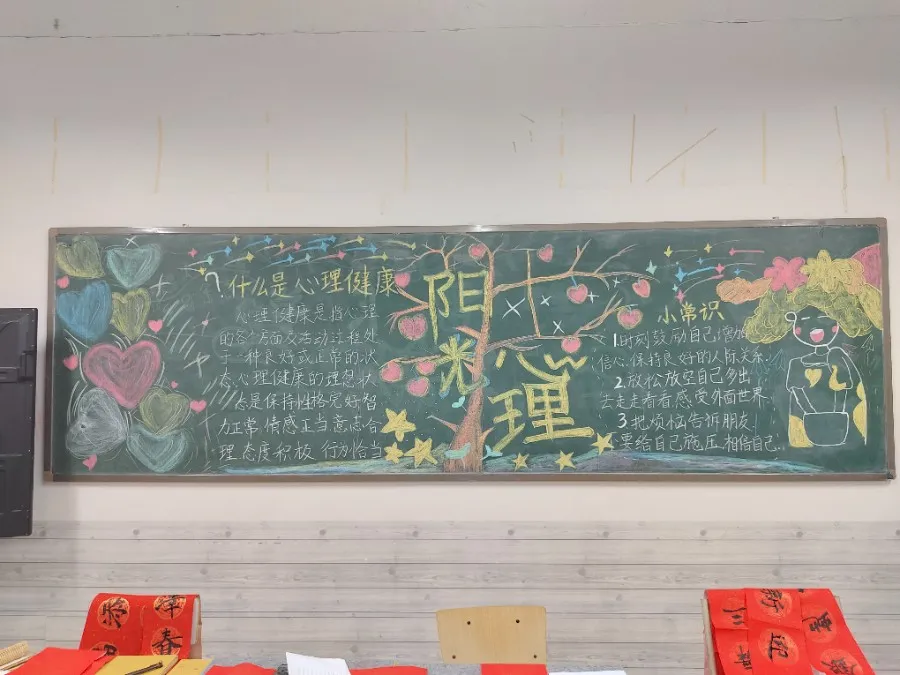 ?什么是心理健康
心理健康是指心理
的各个方面及活动过程处
于一种良好或正常的状
态.心理健康的理想状
态是保持性格完好,智
力正常,情感正当,意志合
理,态度积极,行为恰当
阳光
心理
小常识
1.时刻鼓励自己,增加
信心,保持良好的人际关系.
2.放松放空自己,多出
去走走看看,感受外面世界
3.把烦恼告诉朋友
要给自己施压,相信自己.
春
迎